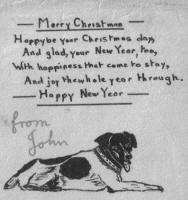 — Merry Christmas —
Happy be your Christmas day,
And glad, your New Year, too,
With happiness that come to stay,
And joy the whole year through.
— Happy New Year —
from
John